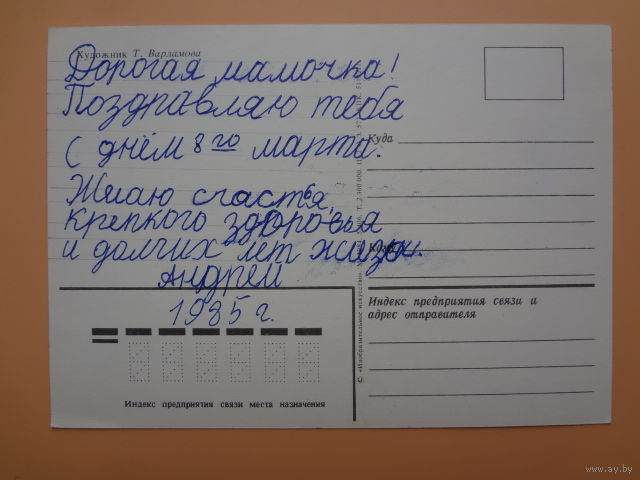 Художник Т. Варламова
Дорогая мамочка!
Поздравляю тебя
с днём 8го марта.
Желаю счастья,
крепкого здоровья
и долгих лет жизни.
Андрей
1985 г.
Куда
Кому
Индекс предприятия связи и
адрес отправителя
Индекс предприятия связи места назначения
© «Изобразительное искусство».
www.ay.by